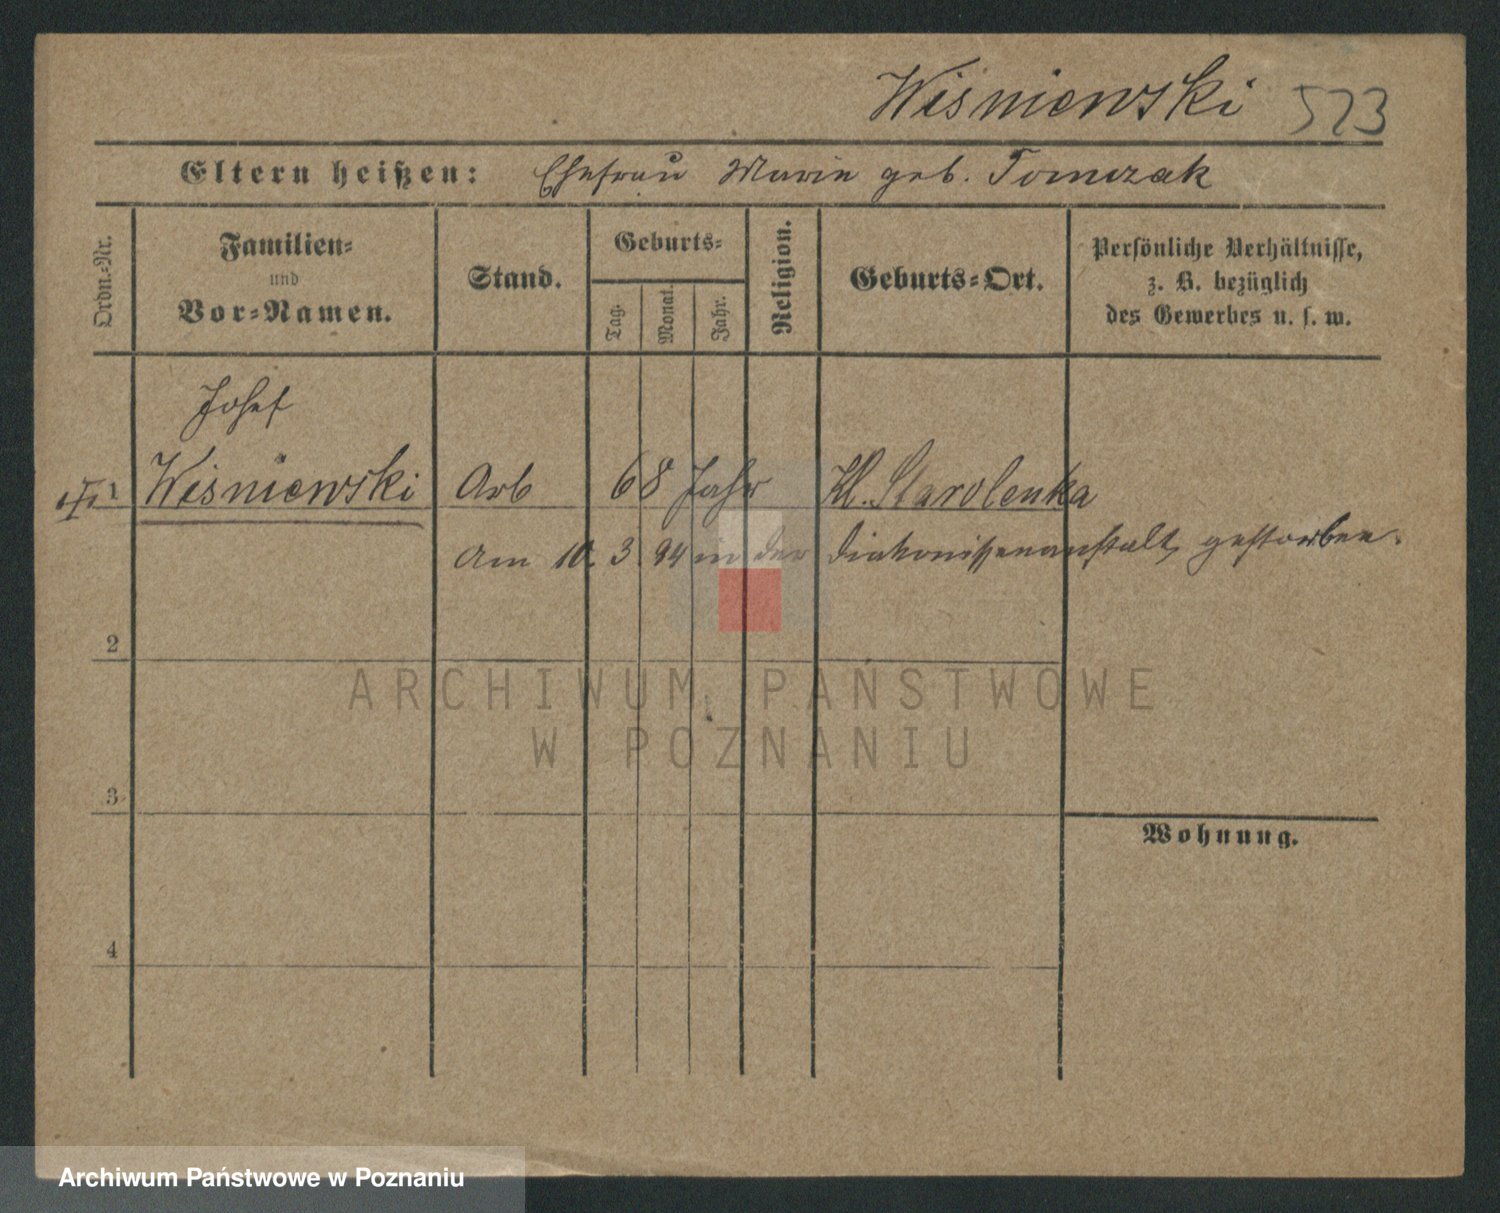 Wiśniewski 523
Eltern heißen: Ehefrau Marie geb. Tomczak
Ordn.-Nr.
Familien-
und
Vor-Namen.
Stand.
Geburts-
Tag.
Monat.
Jahr.
Religion.
Geburts-Ort.
Persönliche Verhältnisse,
z. B. bezüglich
des Gewerbes u. s. w.
Josef
1 Wiśniewski Arb 68 Jahr Kl. Starolenka
am 10. 3. 94 in der Diakonissenanstalt gestorben.
2
ARCHIWUM PAŃSTWOWE
W POZNANIU
3
Wohnung.
4
Archiwum Państwowe w Poznaniu